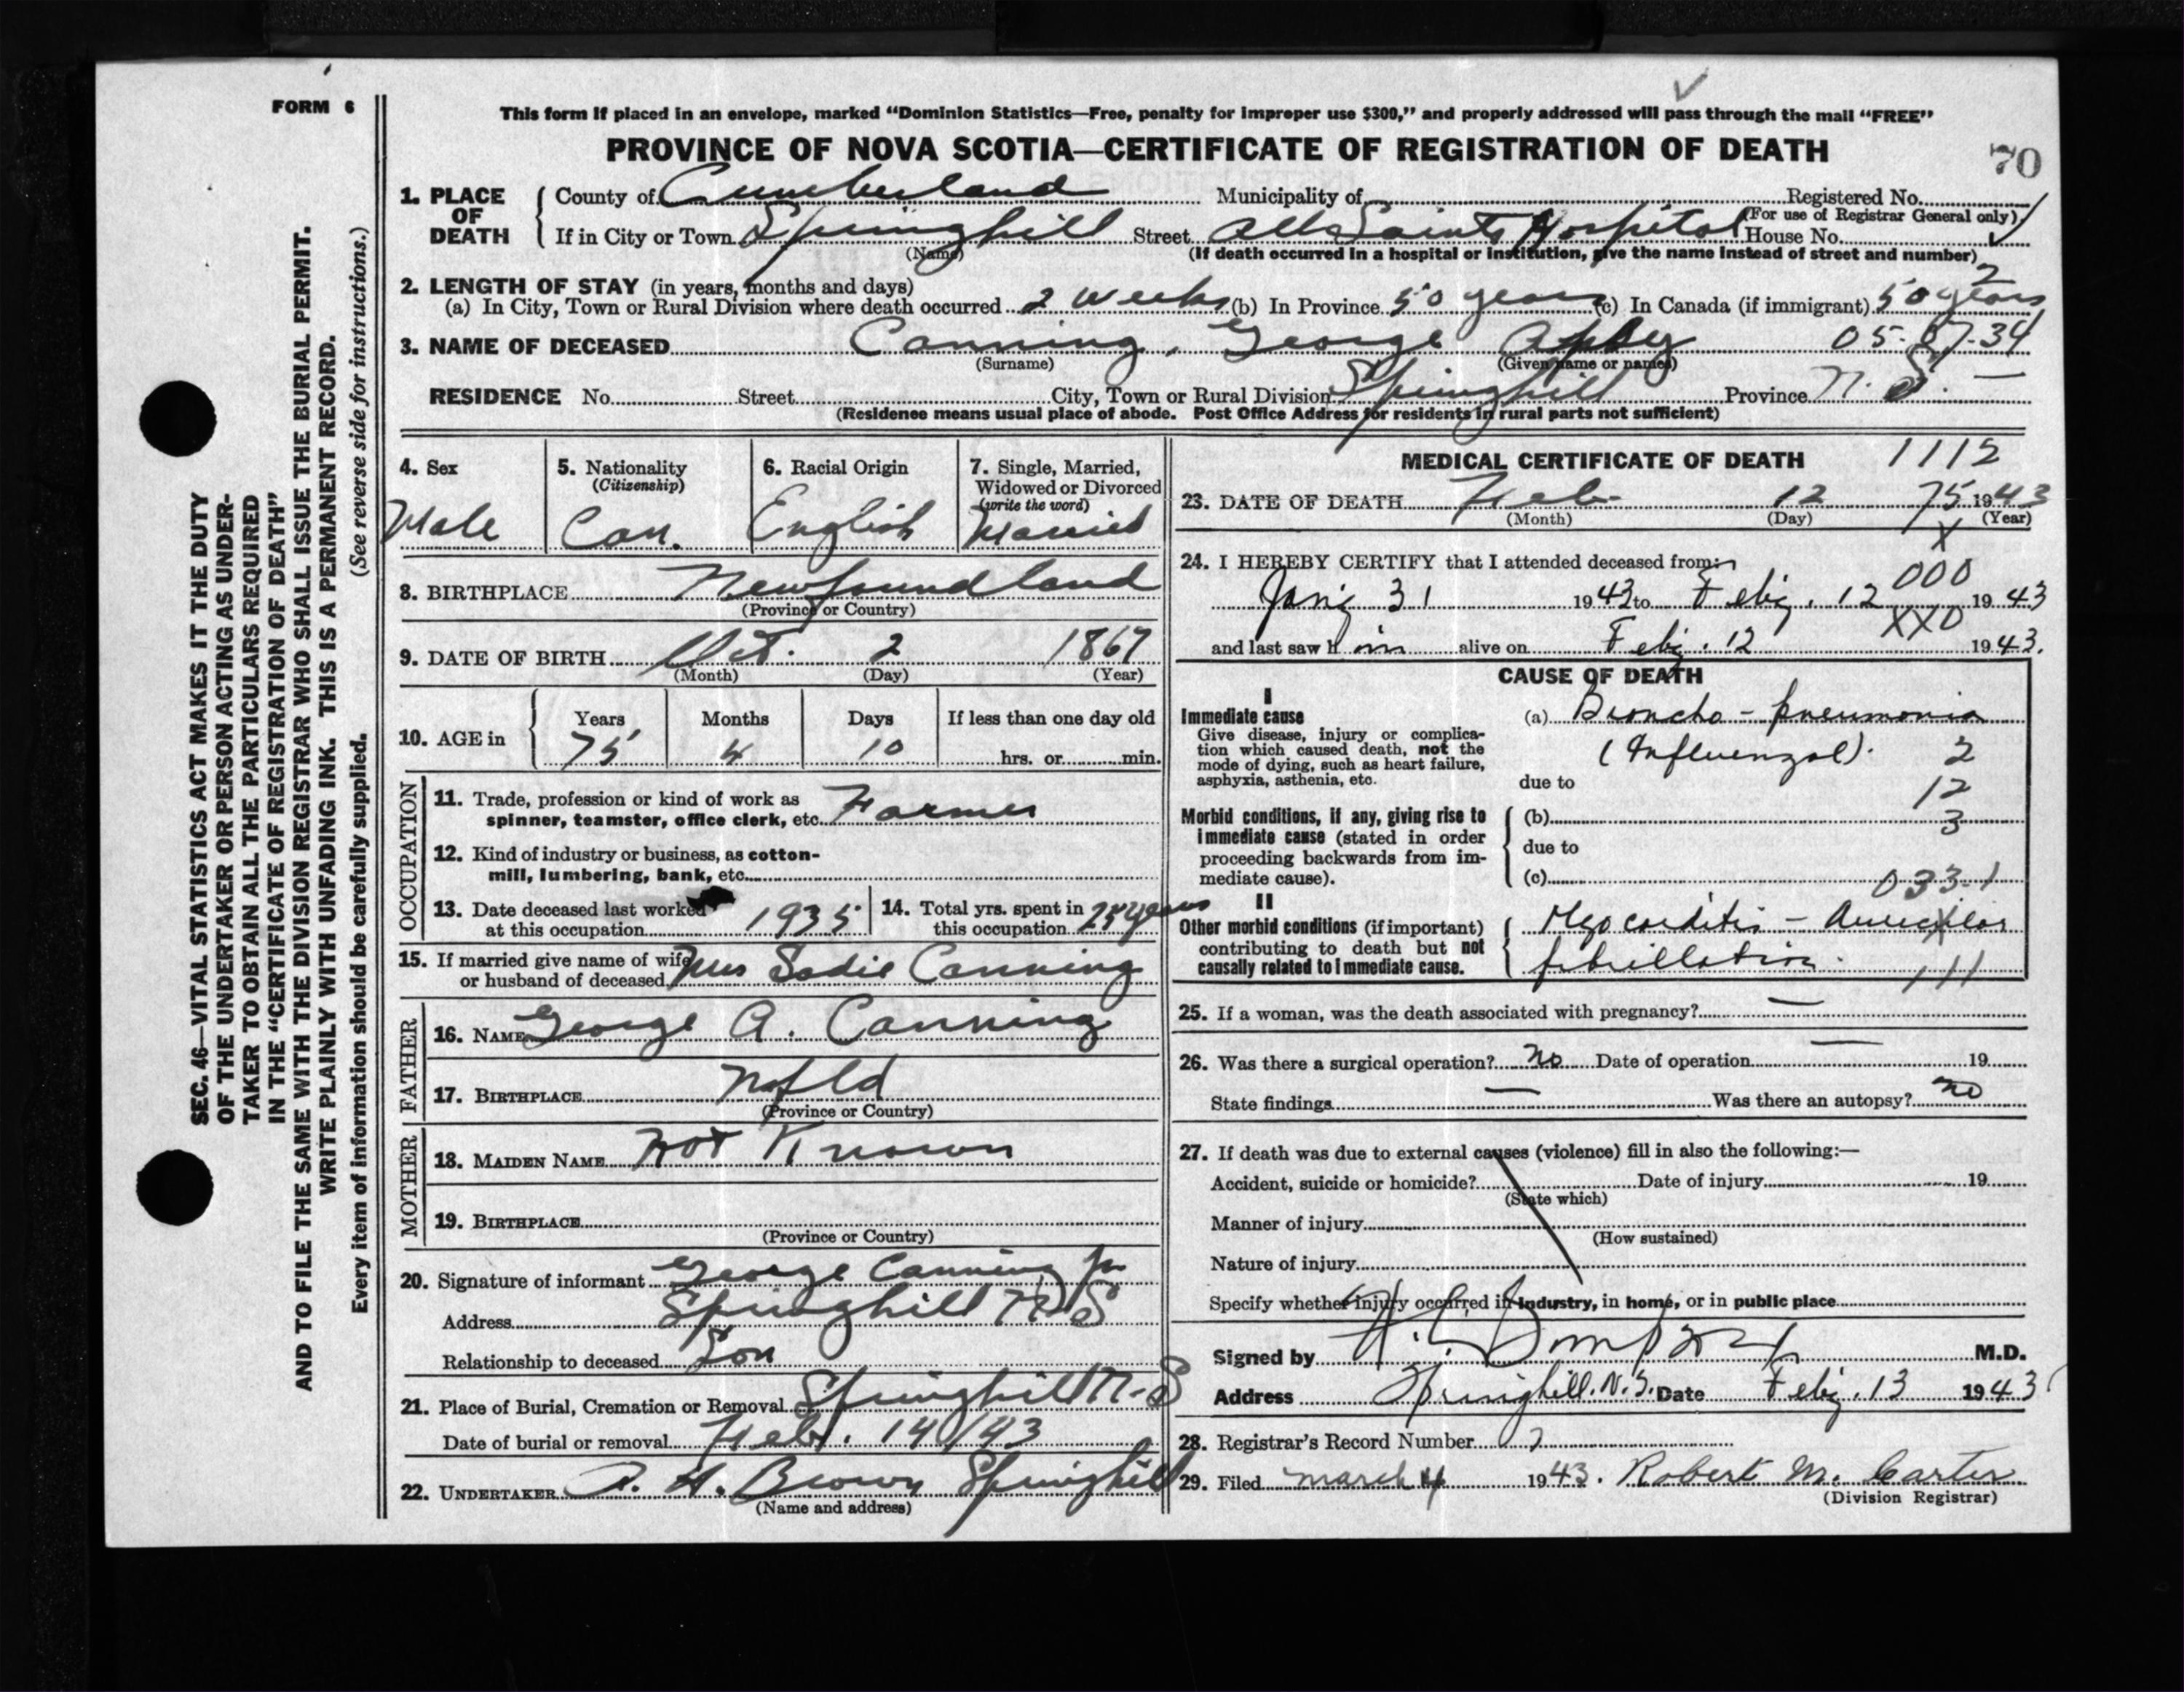 FORM 6
This form if placed in an envelope, marked "Dominion Statistics—Free, penalty for improper use $300," and properly addressed will pass through the mail "FREE"
PROVINCE OF NOVA SCOTIA—CERTIFICATE OF REGISTRATION OF DEATH
70
1. PLACE OF DEATH
County of Cumberland Municipality of Registered No.
(For use of Registrar General only)
If in City or Town Springhill Street All Saints Hospital House No.
(Name) (If death occurred in a hospital or institution, give the name instead of street and number)
2. LENGTH OF STAY (in years, months and days) 2
(a) In City, Town or Rural Division where death occurred 2 weeks (b) In Province 50 years (c) In Canada (if immigrant) 50 years
3. NAME OF DECEASED Canning, George 05-87-34
(Surname) (Given name or names)
RESIDENCE No. Street City, Town or Rural Division Springhill Province N. S. —
(Residence means usual place of abode. Post Office Address for residents in rural parts not sufficient)
4. Sex
Male
5. Nationality
(Citizenship)
Can.
6. Racial Origin
English
7. Single, Married,
Widowed or Divorced
(write the word)
Married
8. BIRTHPLACE Newfoundland
(Province or Country)
9. DATE OF BIRTH Oct. 2 1867
(Month) (Day) (Year)
10. AGE in
Years Months Days If less than one day old
75 4 10 hrs. or min.
OCCUPATION
11. Trade, profession or kind of work as
spinner, teamster, office clerk, etc. Farmer
12. Kind of industry or business, as cotton-
mill, lumbering, bank, etc.
13. Date deceased last worked
at this occupation 1935
14. Total yrs. spent in
this occupation 25 years
15. If married give name of wife
or husband of deceased Mrs Sadie Canning
FATHER
16. NAME George A. Canning
17. BIRTHPLACE Nfld
(Province or Country)
MOTHER
18. MAIDEN NAME Not Known
19. BIRTHPLACE
(Province or Country)
20. Signature of informant George Canning Jr
Address Springhill N S
Relationship to deceased Son
21. Place of Burial, Cremation or Removal Springhill N-S
Date of burial or removal Feb. 14/43
22. UNDERTAKER A. H. Brown Springhill
(Name and address)
MEDICAL CERTIFICATE OF DEATH 1112
23. DATE OF DEATH Feb. 12 75 1943
(Month) (Day) (Year)
X
24. I HEREBY CERTIFY that I attended deceased from:
000
Jany 31 1943 to Feby. 12 1943
XX0
and last saw h im alive on Feby. 12 1943.
CAUSE OF DEATH
I
Immediate cause
Give disease, injury or complica-
tion which caused death, not the
mode of dying, such as heart failure,
asphyxia, asthenia, etc.
(a) Broncho-pneumonia
(Influenzal). 2
due to
12
Morbid conditions, if any, giving rise to
immediate cause (stated in order
proceeding backwards from im-
mediate cause).
(b) 3
due to
(c) 033-1
II
Other morbid conditions (if important)
contributing to death but not
causally related to immediate cause.
Myocarditis - Auricular
fibrillation.
111
25. If a woman, was the death associated with pregnancy? —
26. Was there a surgical operation? no Date of operation — 19
State findings — Was there an autopsy? no
27. If death was due to external causes (violence) fill in also the following:—
Accident, suicide or homicide? Date of injury 19
(State which)
Manner of injury
(How sustained)
Nature of injury
Specify whether injury occurred in industry, in home, or in public place
Signed by M.D.
Address Springhill. N.S. Date Feby. 13 1943
28. Registrar's Record Number 7
29. Filed March 4 1943. Robert M. Carter
(Division Registrar)
SEC. 46—VITAL STATISTICS ACT MAKES IT THE DUTY
OF THE UNDERTAKER OR PERSON ACTING AS UNDER-
TAKER TO OBTAIN ALL THE PARTICULARS REQUIRED
IN THE "CERTIFICATE OF REGISTRATION OF DEATH"
AND TO FILE THE SAME WITH THE DIVISION REGISTRAR WHO SHALL ISSUE THE BURIAL PERMIT.
WRITE PLAINLY WITH UNFADING INK. THIS IS A PERMANENT RECORD.
Every item of information should be carefully supplied. (See reverse side for instructions.)